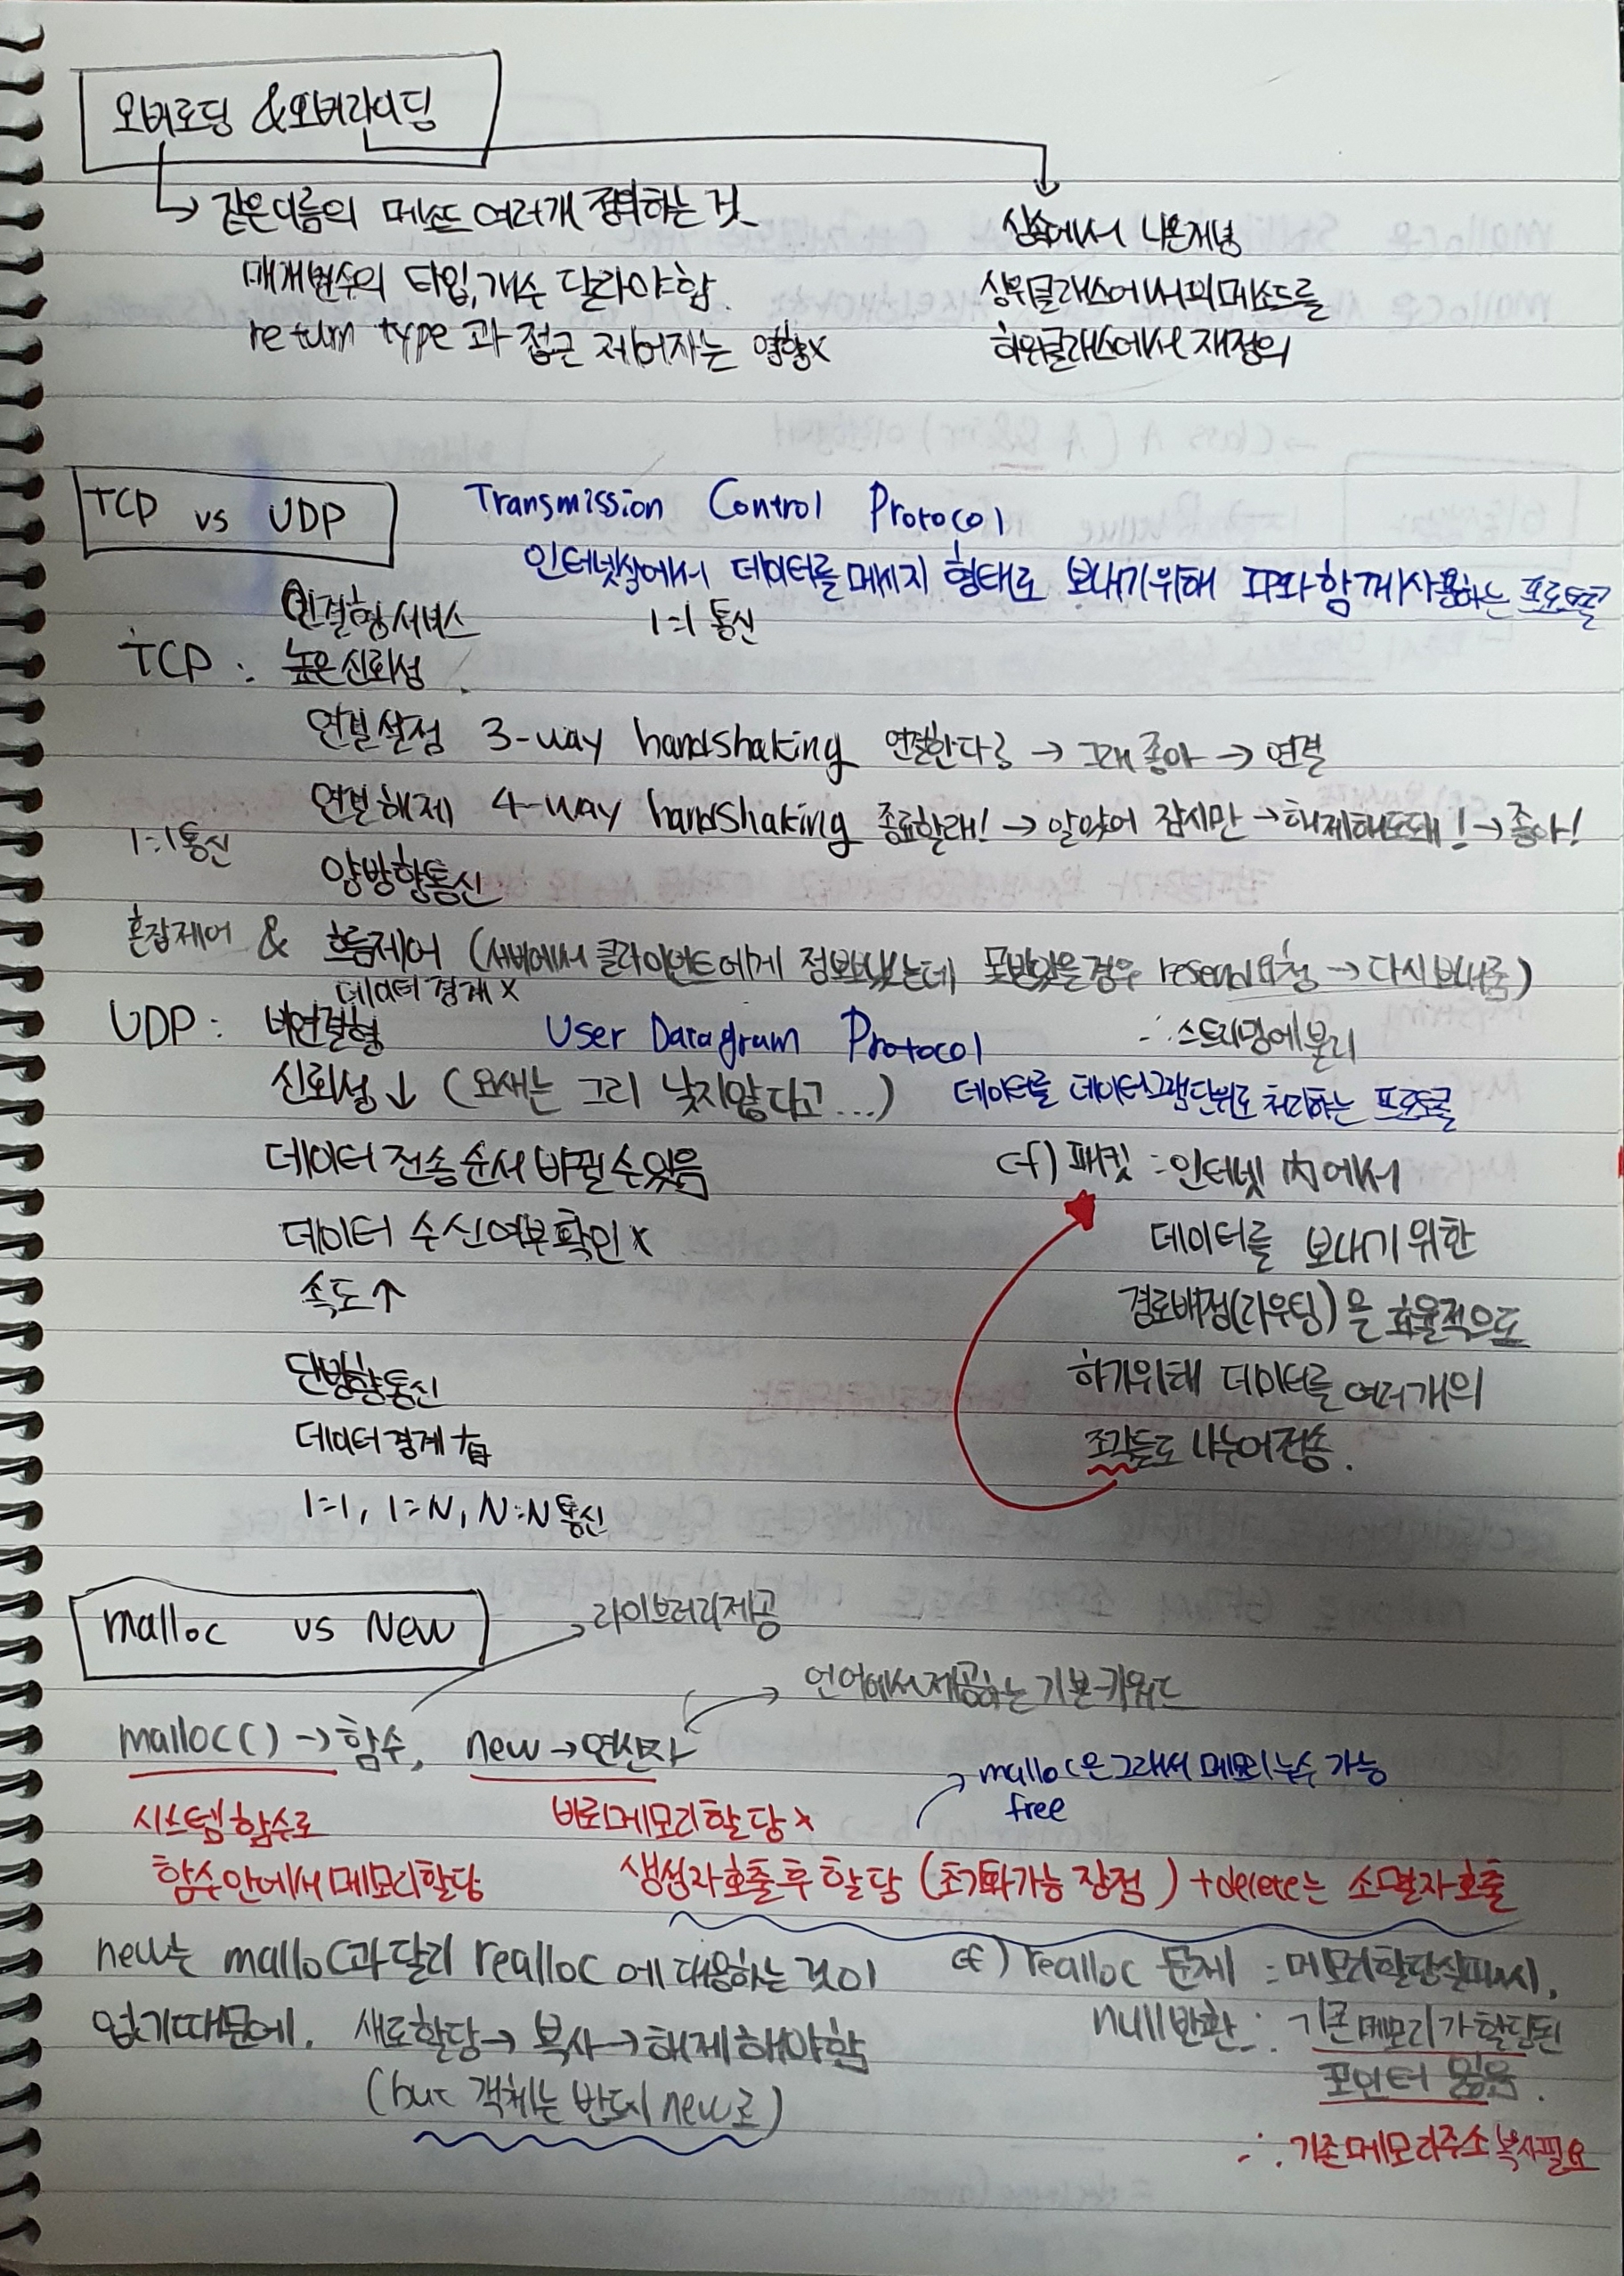 오버로딩 & 오버라이딩
같은이름의 메소드 여러개 정의하는 것
매개변수의 타입, 개수 달라야함.
return type과 접근 제어자는 영향x
상속에서 나온개념
상위클래스에서의 메소드를
하위클래스에서 재정의
TCP vs UDP
Transmission Control Protocol
인터넷상에서 데이터를 메세지 형태로 보내기위해 IP와 함께 사용하는 프로토콜
연결형서비스 1:1 통신
TCP : 높은신뢰성
연결설정 3-way handshaking 연결한다? → 그래 좋아 → 연결
연결해제 4-way handshaking 종료할래! → 알았어 잠시만 → 해제해도돼! → 좋아!
1:1통신
양방향통신
혼잡제어 & 흐름제어 (서버에서 클라이언트에게 정보보냈는데 못받았을경우 resend요청 → 다시보내줌)
데이터 경계 x
UDP : 비연결형 User Datagram Protocol ∴ 스트리밍에 불리
신뢰성↓ (요새는 그리 낮지않다고...) 데이터를 데이터그램단위로 처리하는 프로토콜
데이터 전송 순서 바뀔수있음
데이터 수신여부확인 x
속도↑
단방향통신
데이터경계 有
1:1, 1:N, N:N 통신
cf) 패킷 : 인터넷 內에서
데이터를 보내기 위한
경로배정(라우팅)을 효율적으로
하기위해 데이터를 여러개의
조각들로 나누어전송.
malloc vs New
라이브러리제공
언어에서제공하는 기본키워드
malloc() → 함수, new → 연산자
malloc은 그래서 메모리누수 가능
free
시스템함수로
함수안에서 메모리할당
바로메모리할당 x
생성자호출 후 할당 (초기화가능 장점) + delete는 소멸자호출
new는 malloc과 달리 realloc에 대응하는 것이
없기때문에. 새로할당 → 복사 → 해제 해야함
(but 객체는 반드시 new로)
cf) realloc 문제 : 메모리할당실패시,
null반환 ∴ 기존메모리가 할당된
포인터 잃음.
∴ 기존메모리주소 복사필요